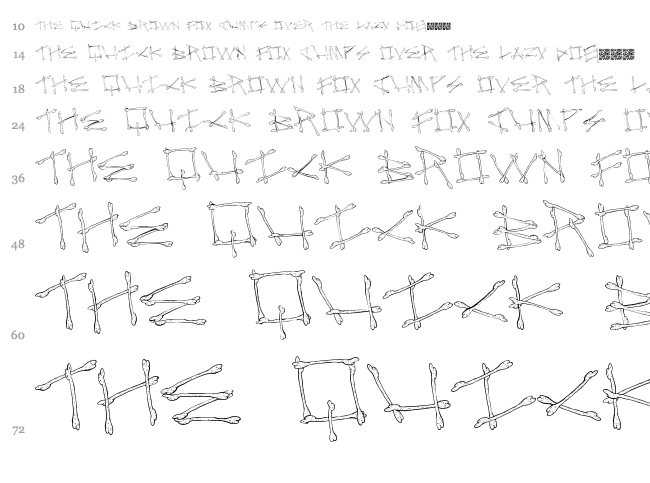 10 THE QUICK BROWN FOX JUMPS OVER THE LAZY DOG
14 THE QUICK BROWN FOX JUMPS OVER THE LAZY DOG
18 THE QUICK BROWN FOX JUMPS OVER THE L
24 THE QUICK BROWN FOX JUMPS O
36 THE QUICK BROWN FO
48 THE QUICK BRO
60 THE QUICK B
72 THE QUICK